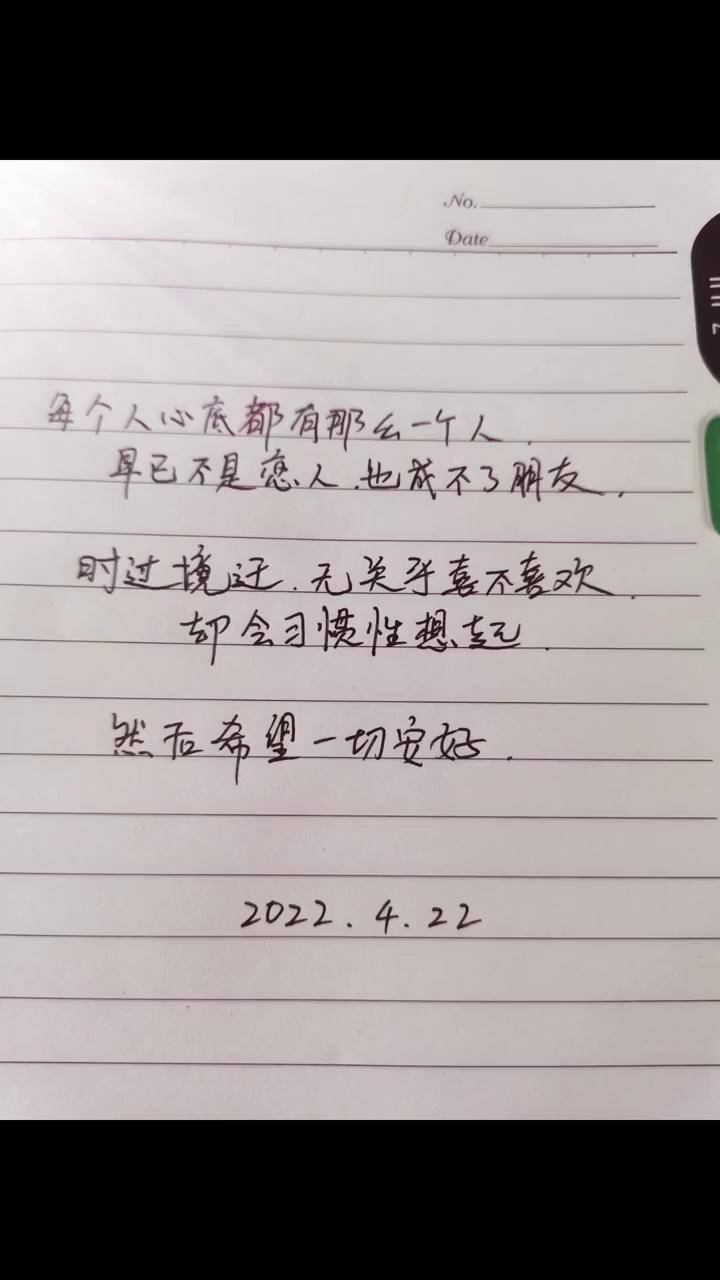 No.
Date
每个人心底都有那么一个人.
早已不是恋人.也成不了朋友.
时过境迁.无关乎喜不喜欢.
却会习惯性想起.
然后希望一切安好.
2022.4.22